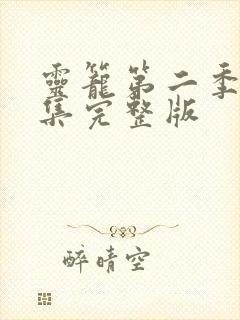 靈籠第二季
集完整版
醉晴空